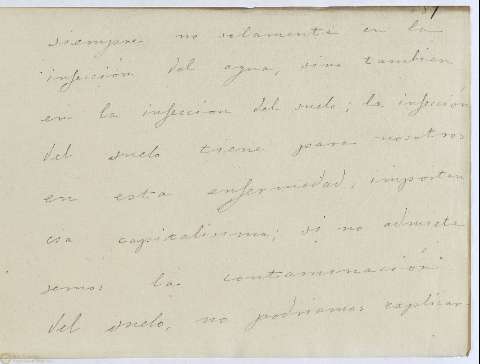 siempre no solamente en la
infección del agua, sino también
en la infeccion del suelo; la infección
del suelo tiene para nosotros
en esta enfermedad, importan
cia capitalisima; si no admitie
semos la contaminación
del suelo, no podriamos explicar-